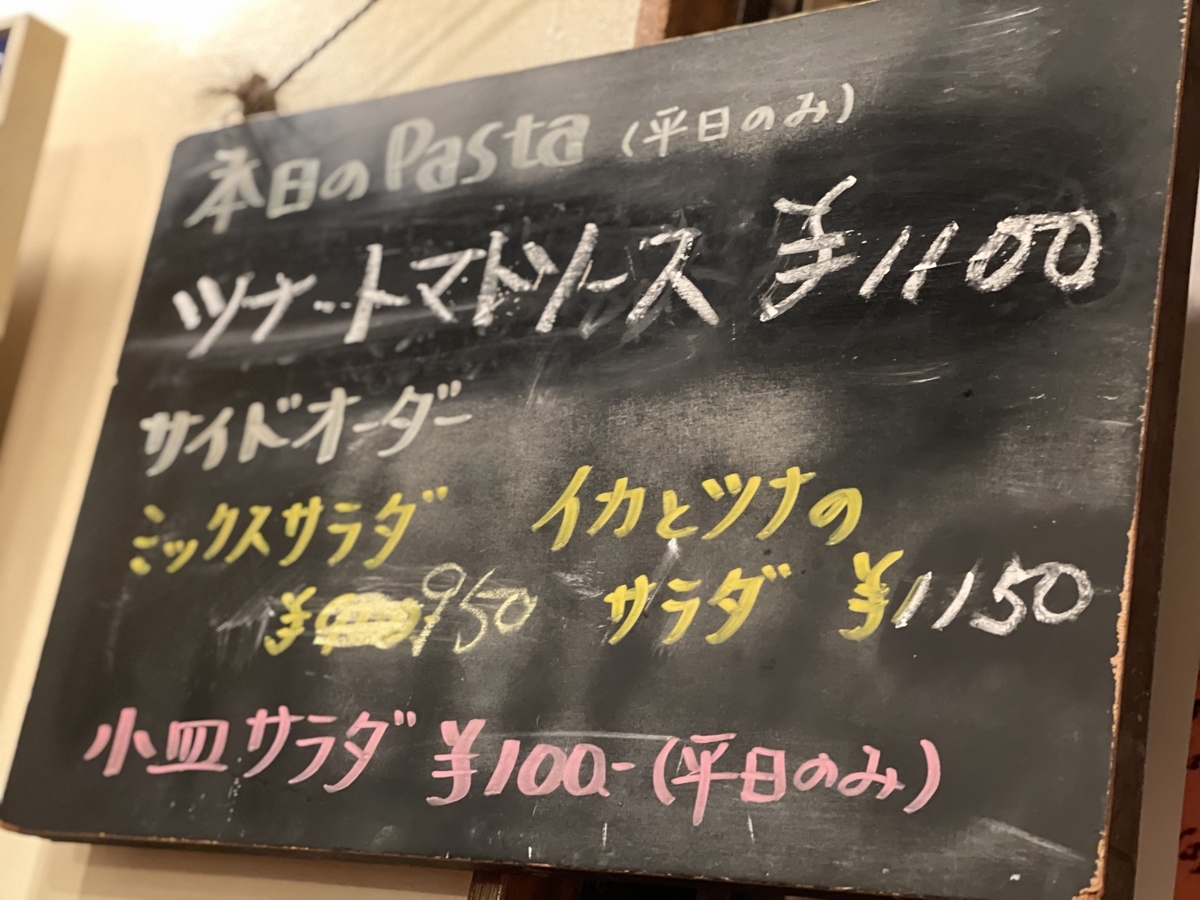 本日のPasta (平日のみ)
ツナートマトソース ¥1100
サイドオーダー
ミックスサラダ
¥950
イカとツナの
サラダ ¥1150
小皿サラダ ¥100- (平日のみ)